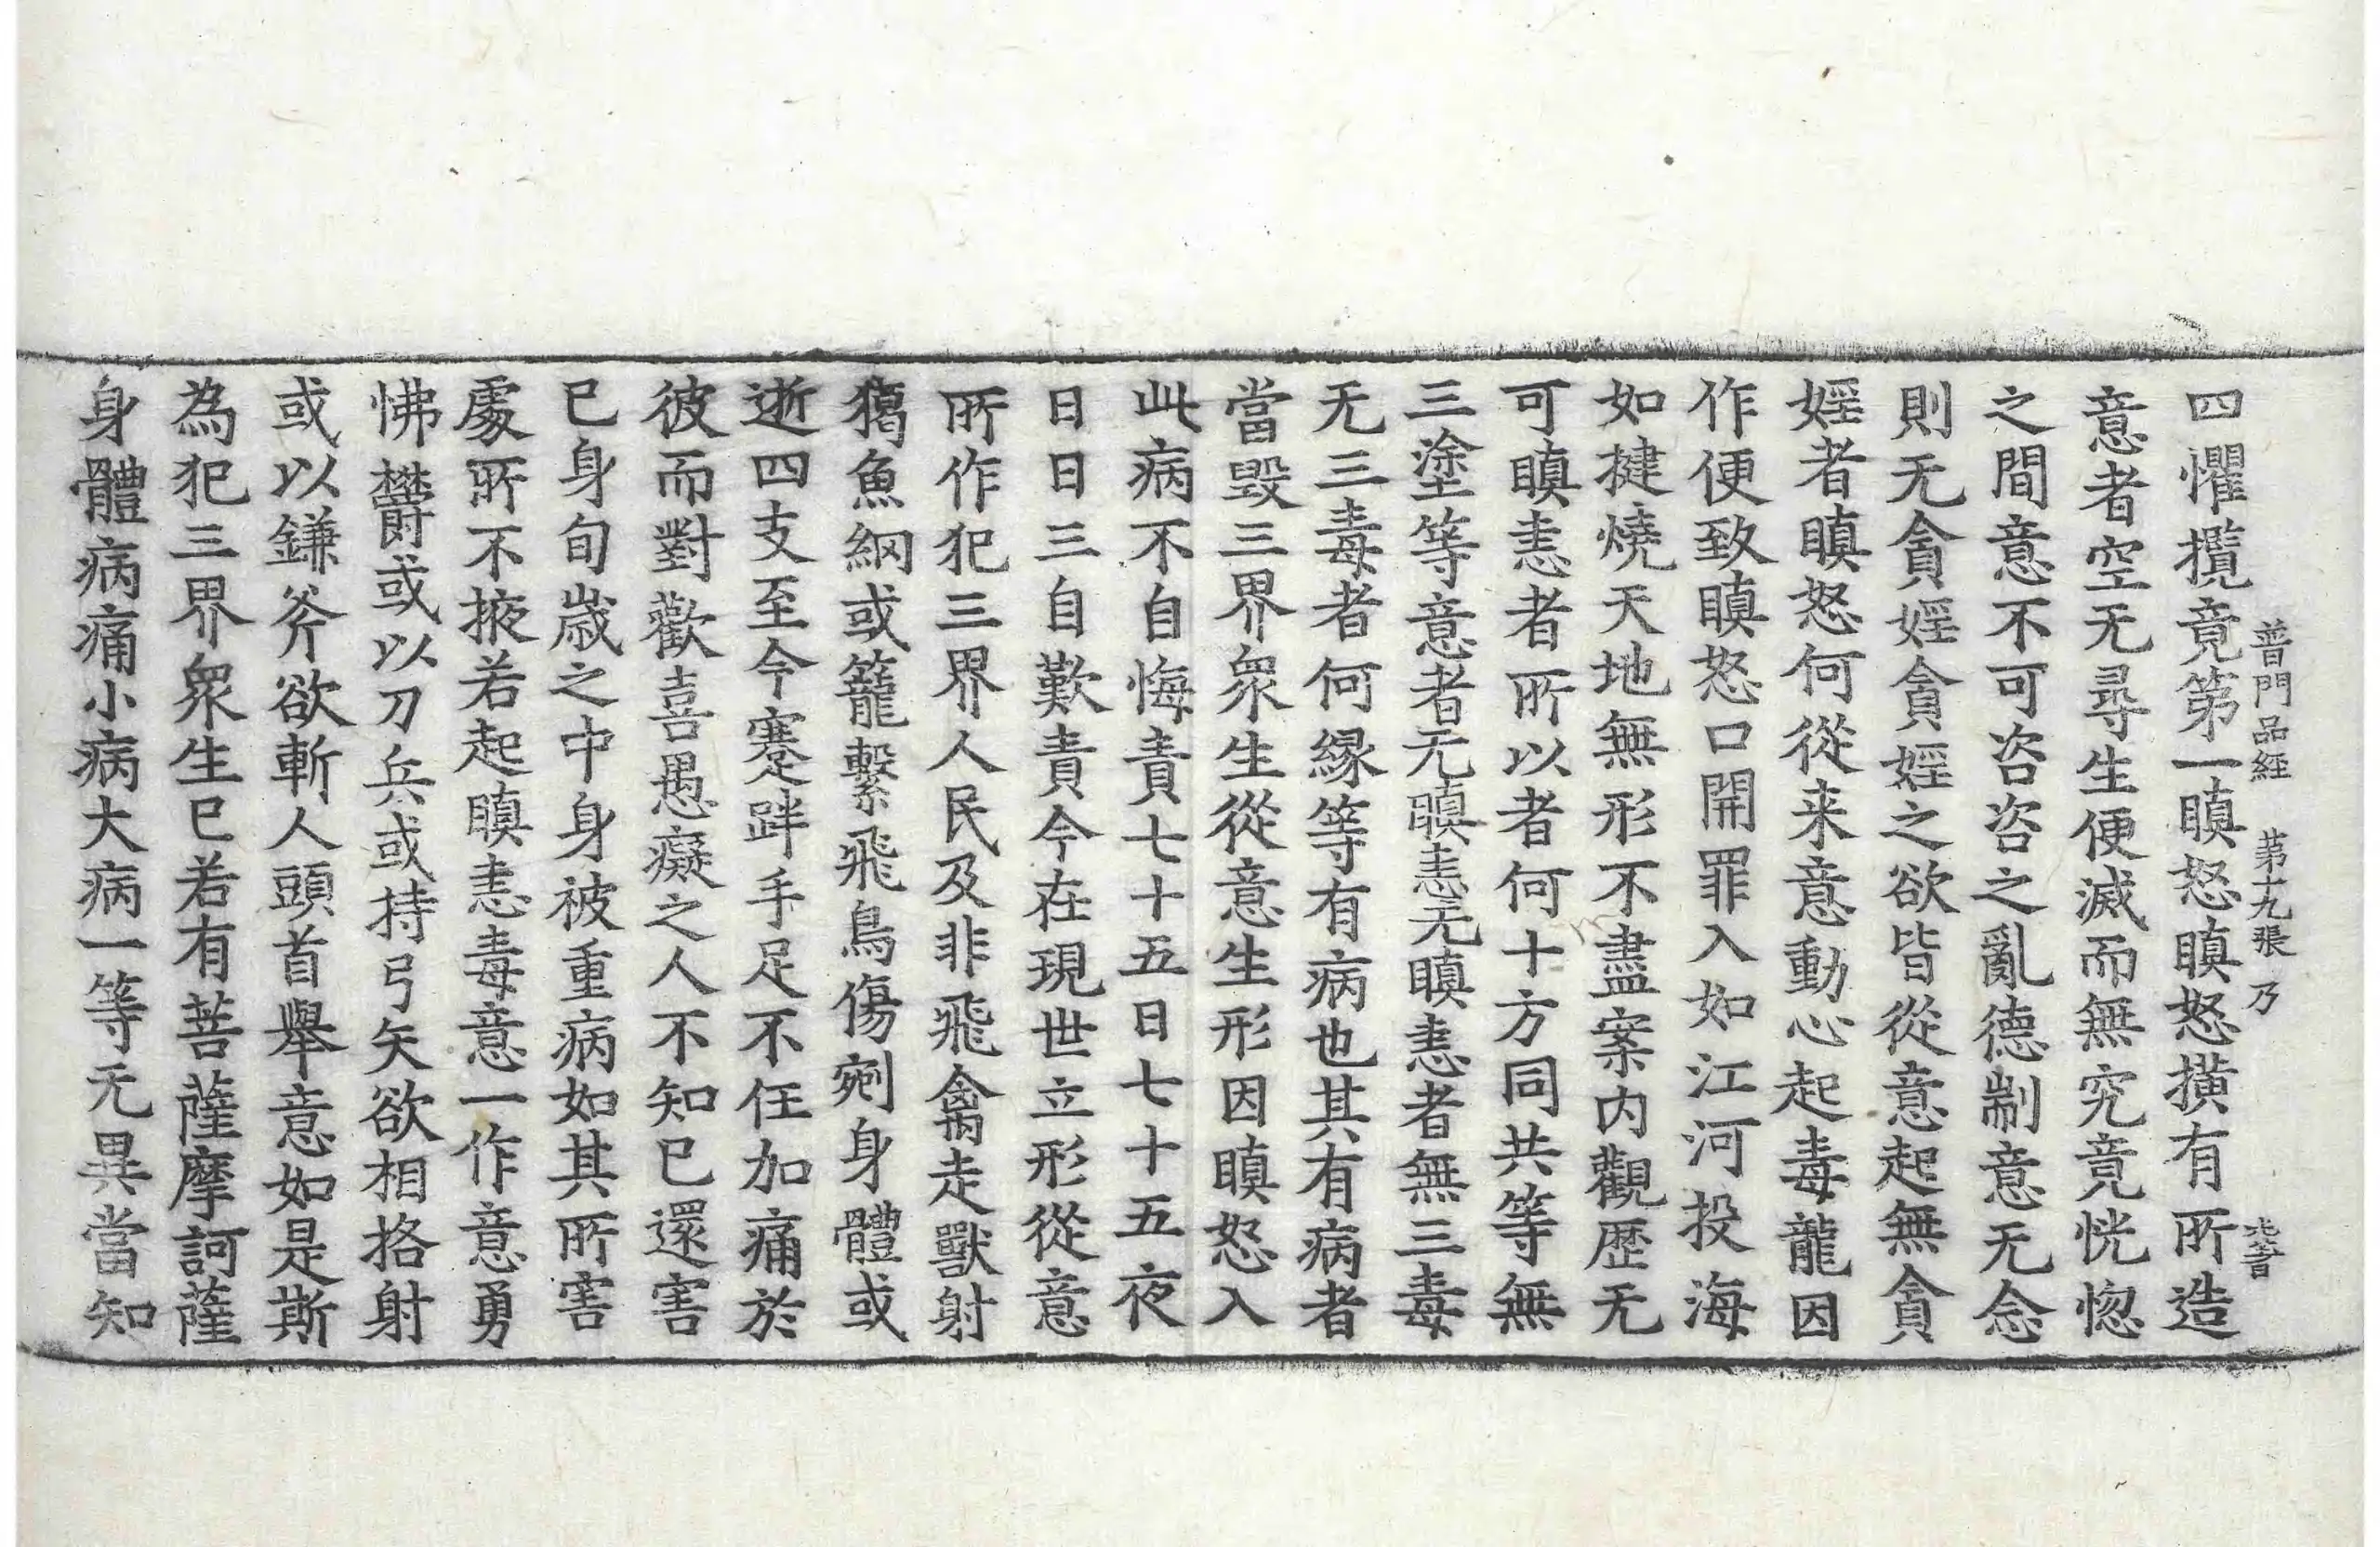 普門品經 第十九張 乃
四懼攬竟第一瞋怒瞋怒撗有所造
意者空无尋生便滅而無究竟恍惚
之間意不可咨咨之亂德制意无念
則无貪婬貪婬之欲皆從意起無貪
婬者瞋怒何從来意動心起毒龍因
作便致瞋怒口開罪入如江河投海
如揵燒天地無形不盡案内觀歷无
可瞋恚者所以者何十方同共等無
三塗等意者无瞋恚无瞋恚者無三毒
无三毒者何縁等有病也其有病者
當毀三界衆生從意生形因瞋怒入
此病不自悔責七十五日七十五夜
日日三自歎責今在現世立形從意
所作犯三界人民及非飛禽走獸射
獦魚網或籠繫飛鳥傷剜身體或
逝四支至令蹇跘手足不任加痛於
彼而對歡喜愚癡之人不知已還害
已身旬歲之中身被重病如其所害
處所不掖若起瞋恚毒意一作意勇
怫欝或以刀兵或持弓矢欲相挌射
或以鎌斧欲斬人頭首舉意如是斯
為犯三界衆生已若有菩薩摩訶薩
身體病痛小病大病一等无異當知